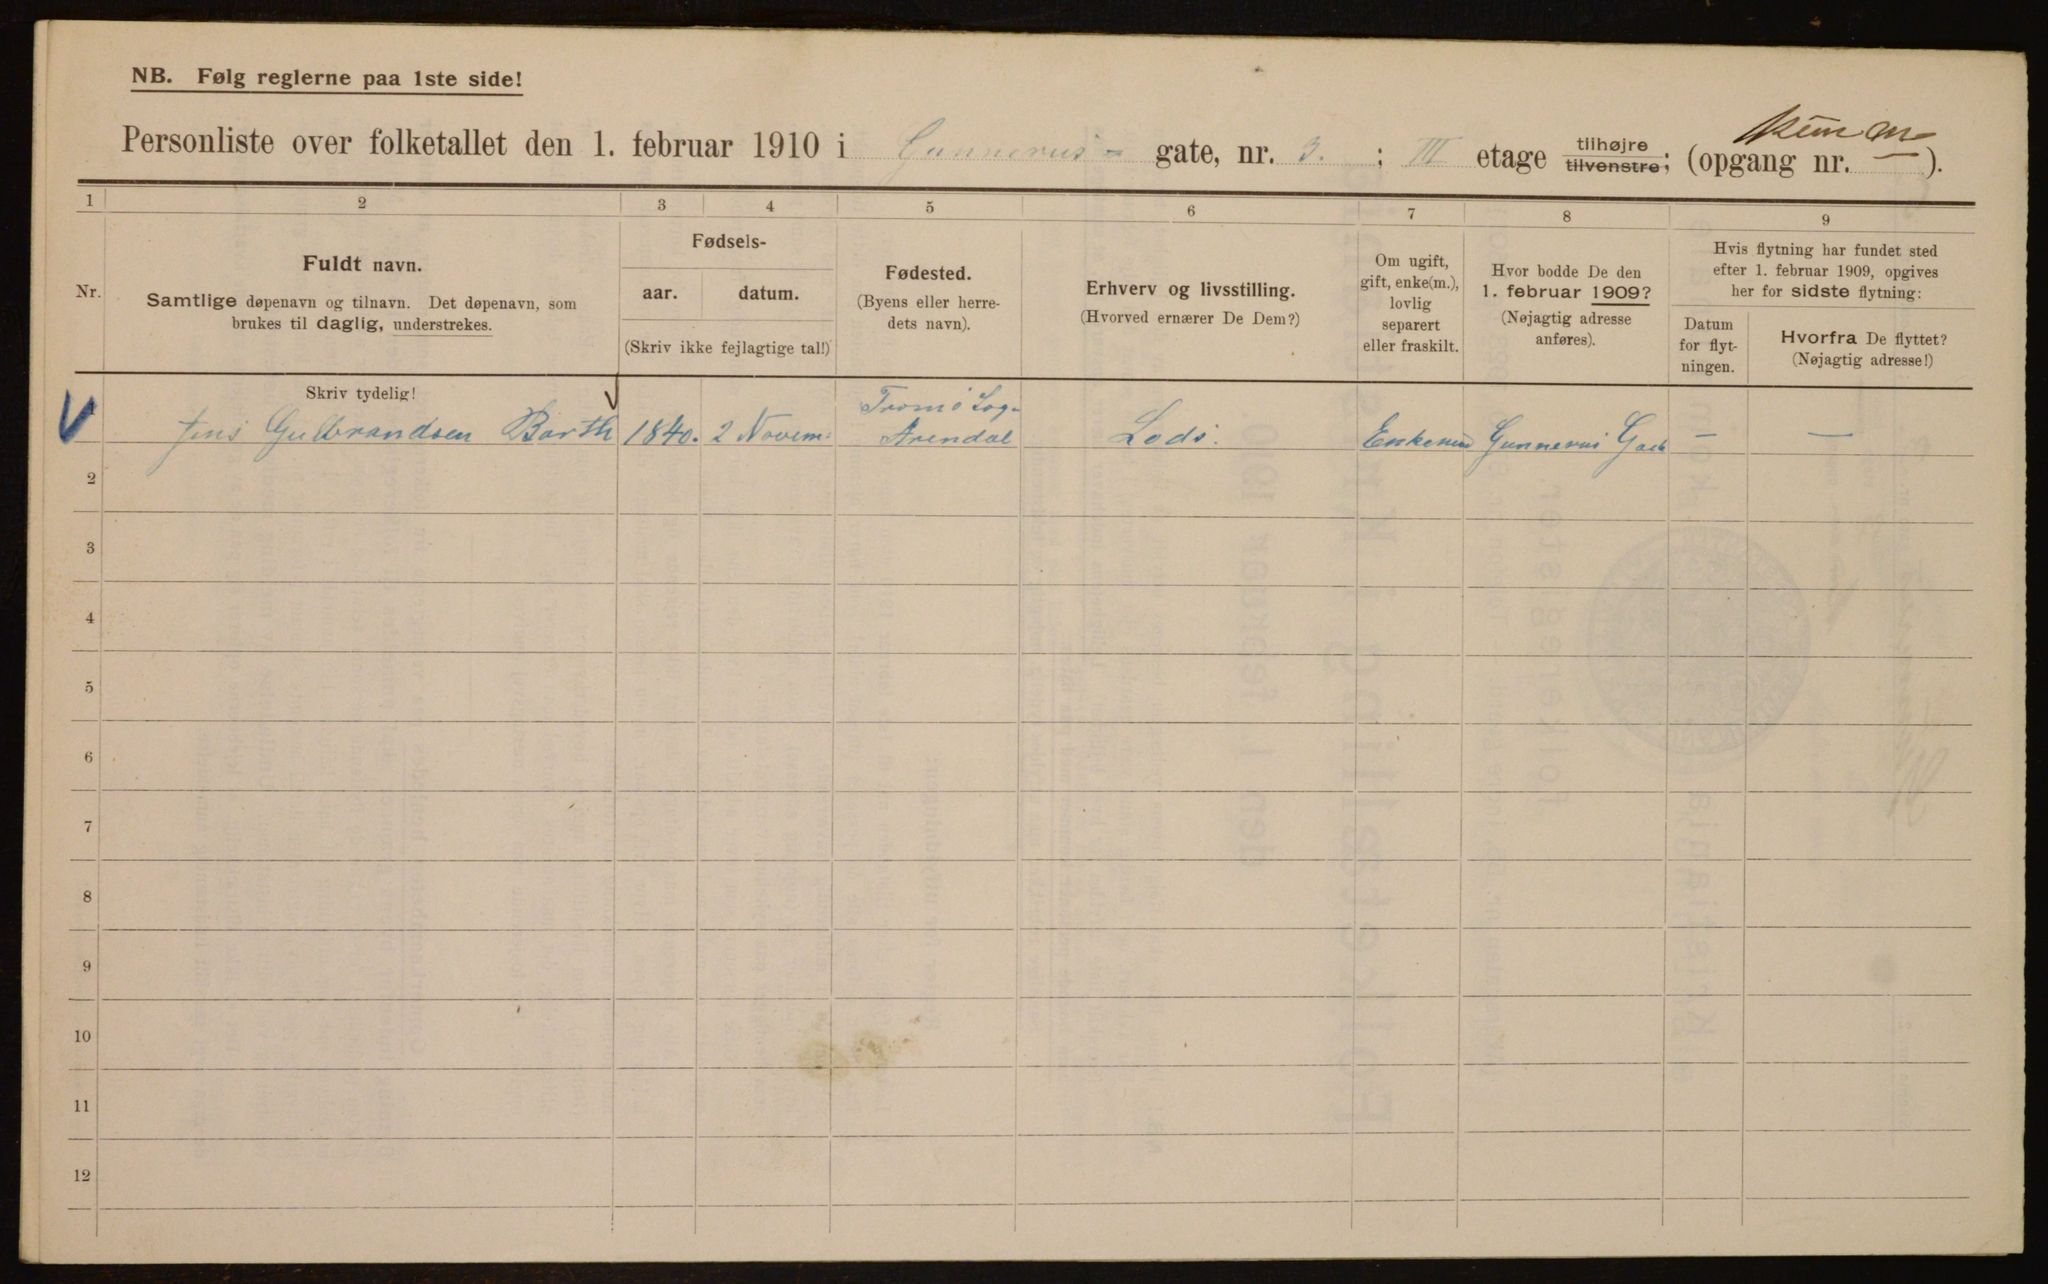 NB. Følg reglerne paa 1ste side!
Personliste over folketallet den 1. februar 1910 i Gunnerus- gate, nr. 3. ; III etage tilhøjre tilvenstre; (opgang nr. — ).
1 2 3 4 5 6 7 8 9
Nr.
Fuldt navn.
Samtlige døpenavn og tilnavn. Det døpenavn, som
brukes til daglig, understrekes.
Fødsels-
aar. datum.
(Skriv ikke fejlagtige tal!)
Fødested.
(Byens eller herre-
dets navn).
Erhverv og livsstilling.
(Hvorved ernærer De Dem?)
Om ugift,
gift, enke(m.),
lovlig
separert
eller fraskilt.
Hvor bodde De den
1. februar 1909?
(Nøjagtig adresse
anføres).
Hvis flytning har fundet sted
efter 1. februar 1909, opgives
her for sidste flytning:
Datum
for flyt-
ningen.
Hvorfra De flyttet?
(Nøjagtig adresse!)
Skriv tydelig!
Jens Gulbrandsen Barth 1840. 2 Novem: Tromø Sog-
Arendal Lods. Gunnerus — —
2
3
4
5
6
7
8
9
10
11
12